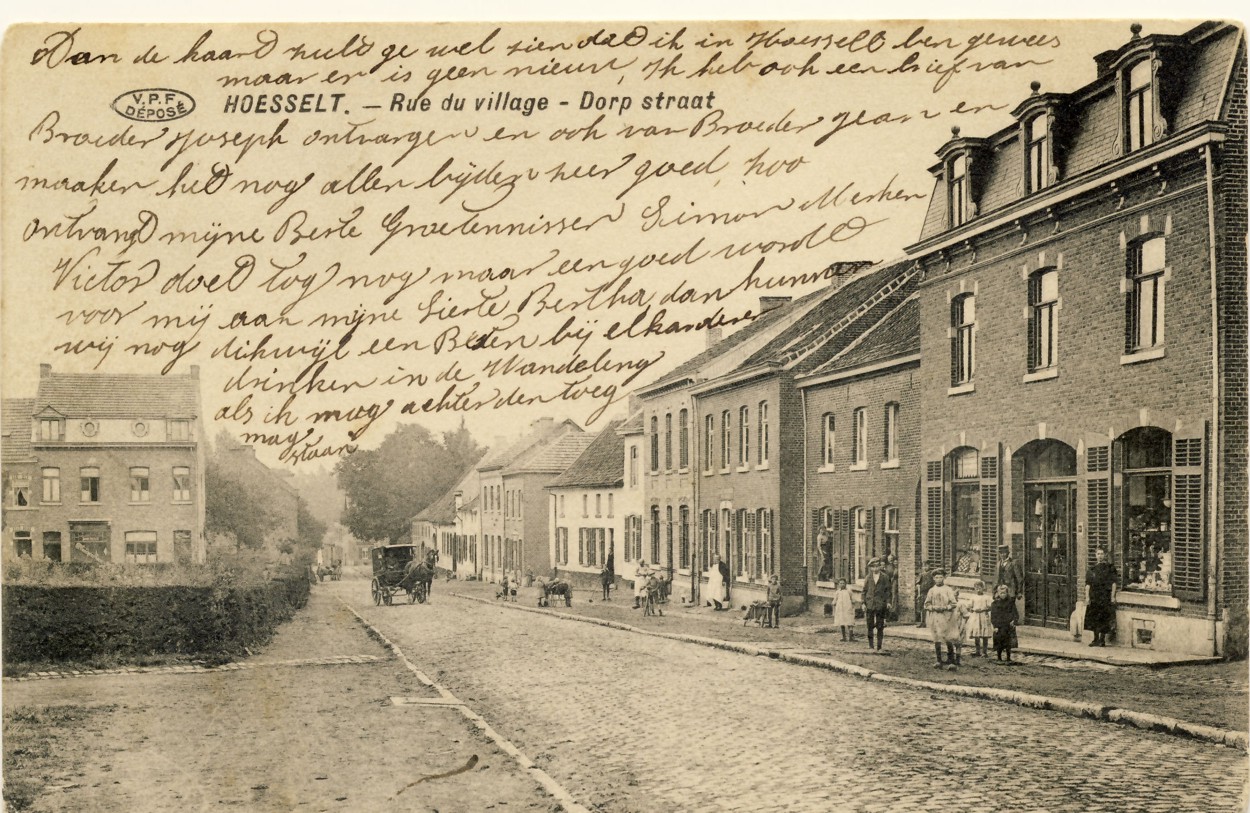 Aan de kaard zuld ge wel zien dad ik in Hoesselt ben gewees
maar er is geen nieuw, Ik heb ook een brief van
V.P.F.
DÉPOSÉ
HOESSELT. — Rue du village - Dorp straat
Broeder Joseph ontvangen en ook van Broeder Jean en
maaken hed nog allen bijden zeer goed, hoo
ontvangd mijne Beste Groetennissen Simon Merken
Victor doed tog nog maar een goed woord
voor mij aan mijne Lieste Bertha dan kunnen
wij nog dichwijl een by elkanderen
drinken in de Wandeling
als ik mog achter den toeg
mag staan